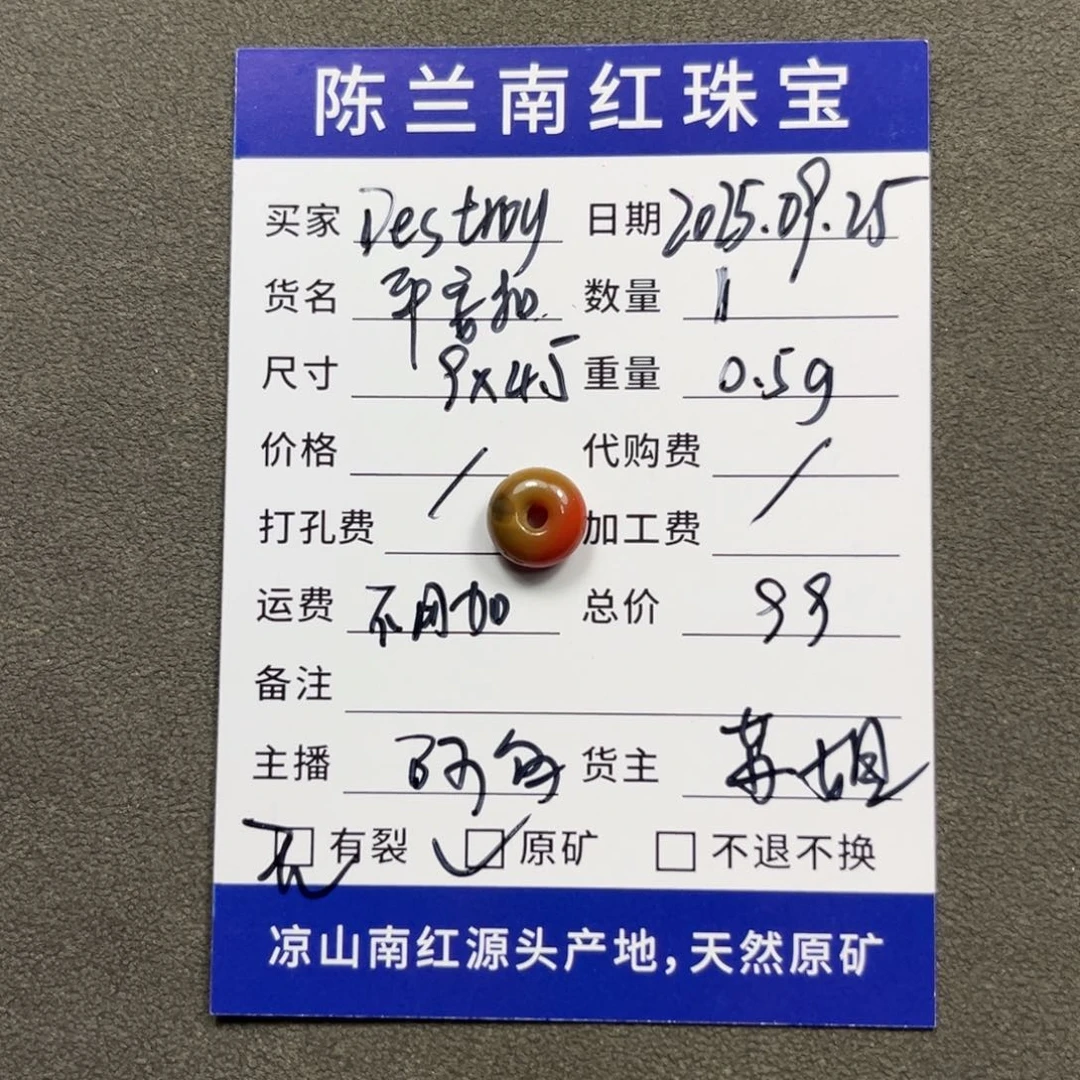 陈兰南红珠宝
买家 Destroy 日期 2025.09.25
货名 平安扣 数量 1
尺寸 9x4.5 重量 0.5g
价格 / 代购费 /
打孔费 加工费
运费 不用加 总价 99
备注
主播 阿 货主 苏姐
无 有裂 ✓ 原矿 不退不换
凉山南红源头产地,天然原矿